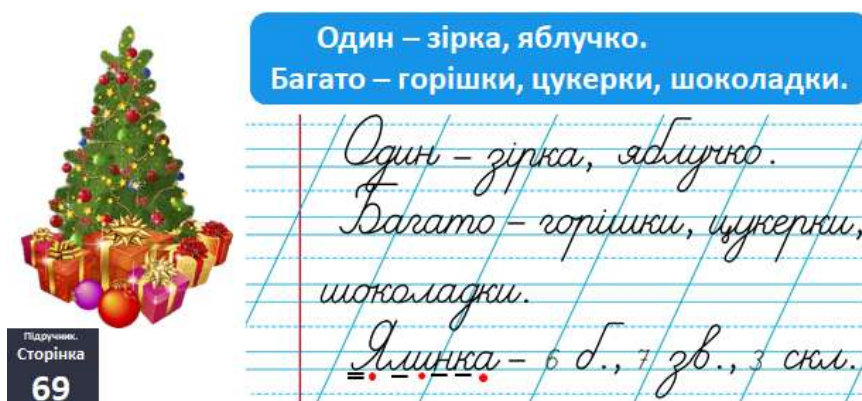 Один – зірка, яблучко.
Багато – горішки, цукерки, шоколадки.
Один – зірка, яблучко.
Багато – горішки, цукерки,
шоколадки.
Ялинка – 6 б., 7 зв., 3 скл.
Підручник.
Сторінка
69